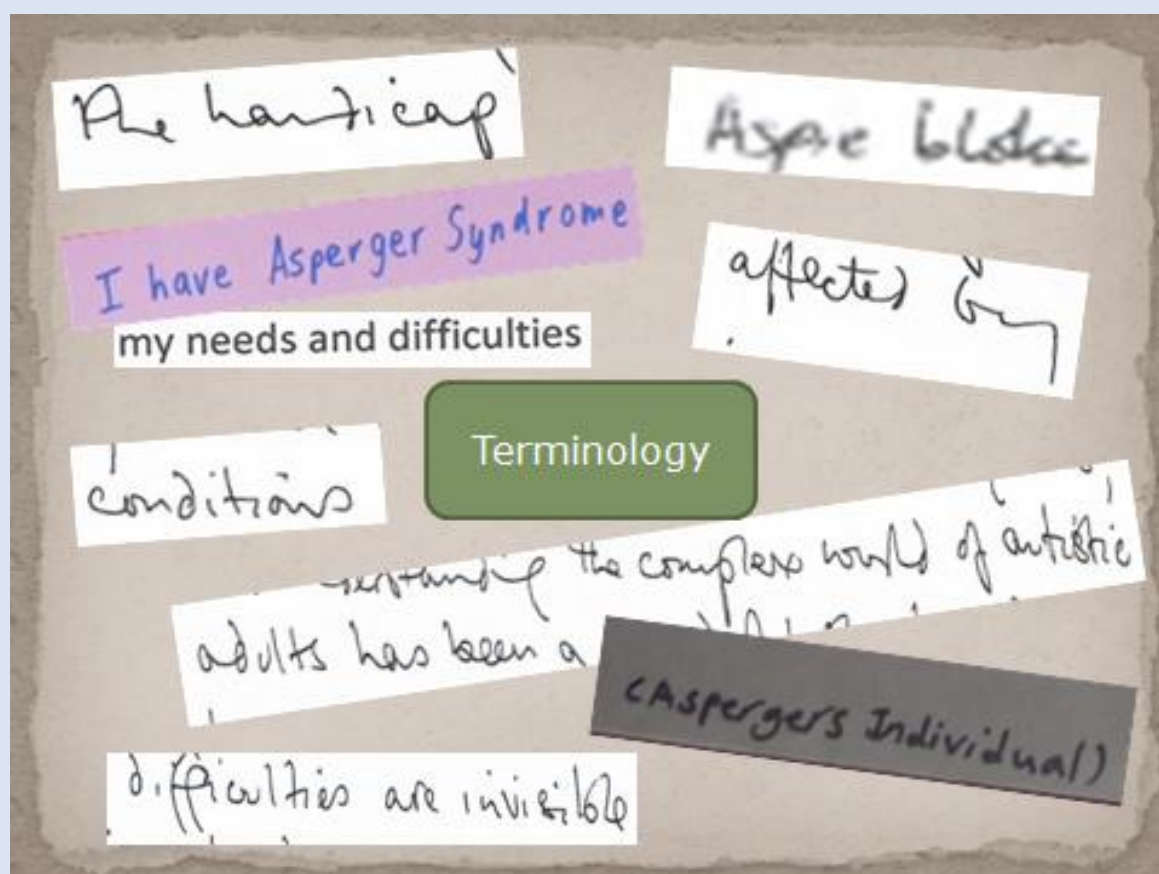 The handicap
Aspie bloke
I have Asperger Syndrome
my needs and difficulties
affected by
conditions
Terminology
the complex world of autistic
adults has been a
(Aspergers Individual)
difficulties are invisible